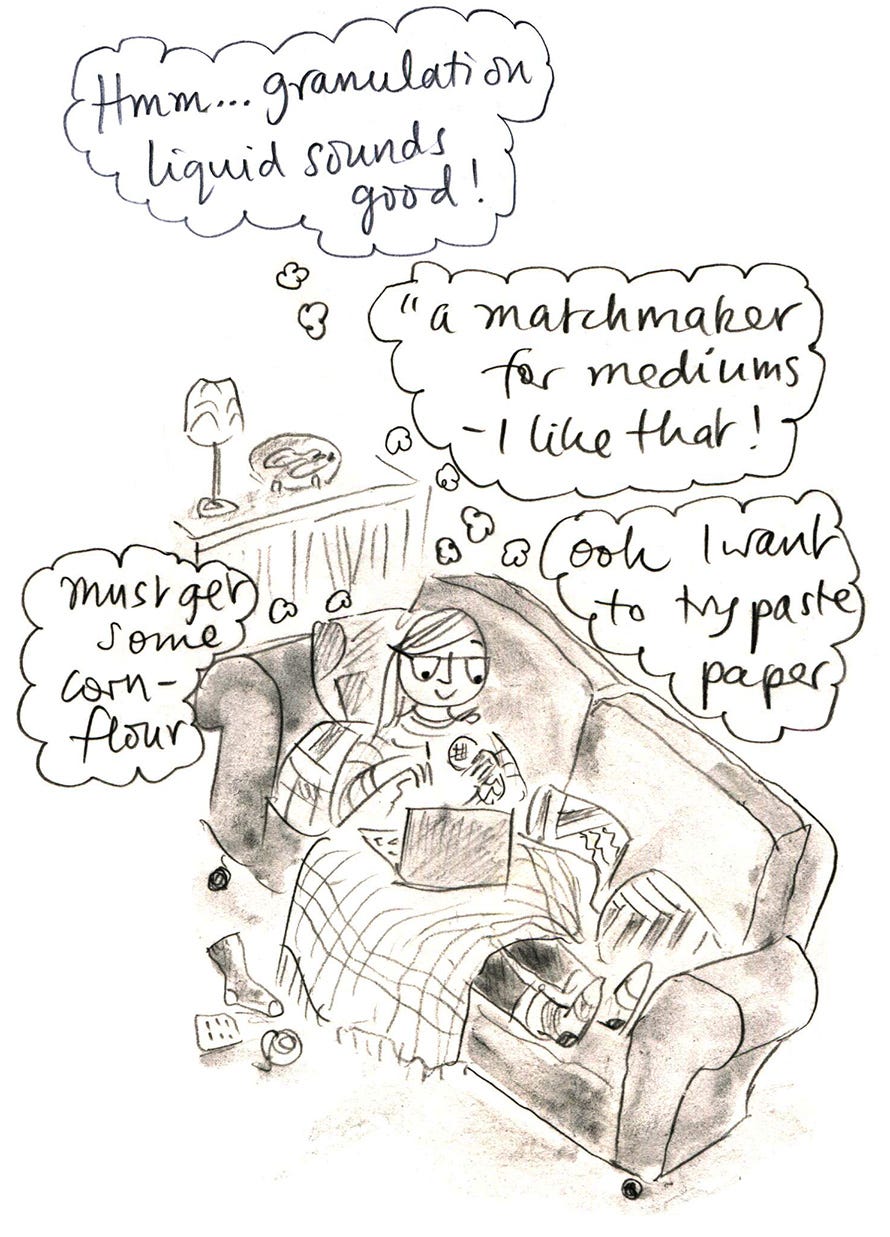 Hmm... granulation
liquid sounds
good!
"a matchmaker
for mediums
- I like that!
ooh I want
to try paste
paper
must get
some
corn-
flour